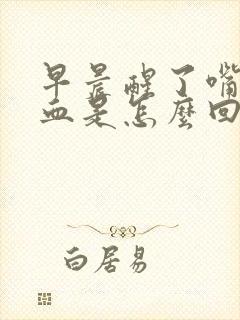 早晨醒了嘴
血是怎麼回
白居易